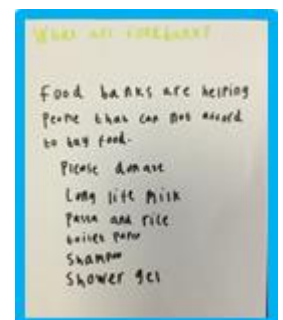 What are foodbanks?
Food banks are helping
People that can not afford
to bay food.
Please donate
Long life milk
Pasta and rice
toilet paper
Shampoo
Shower gel